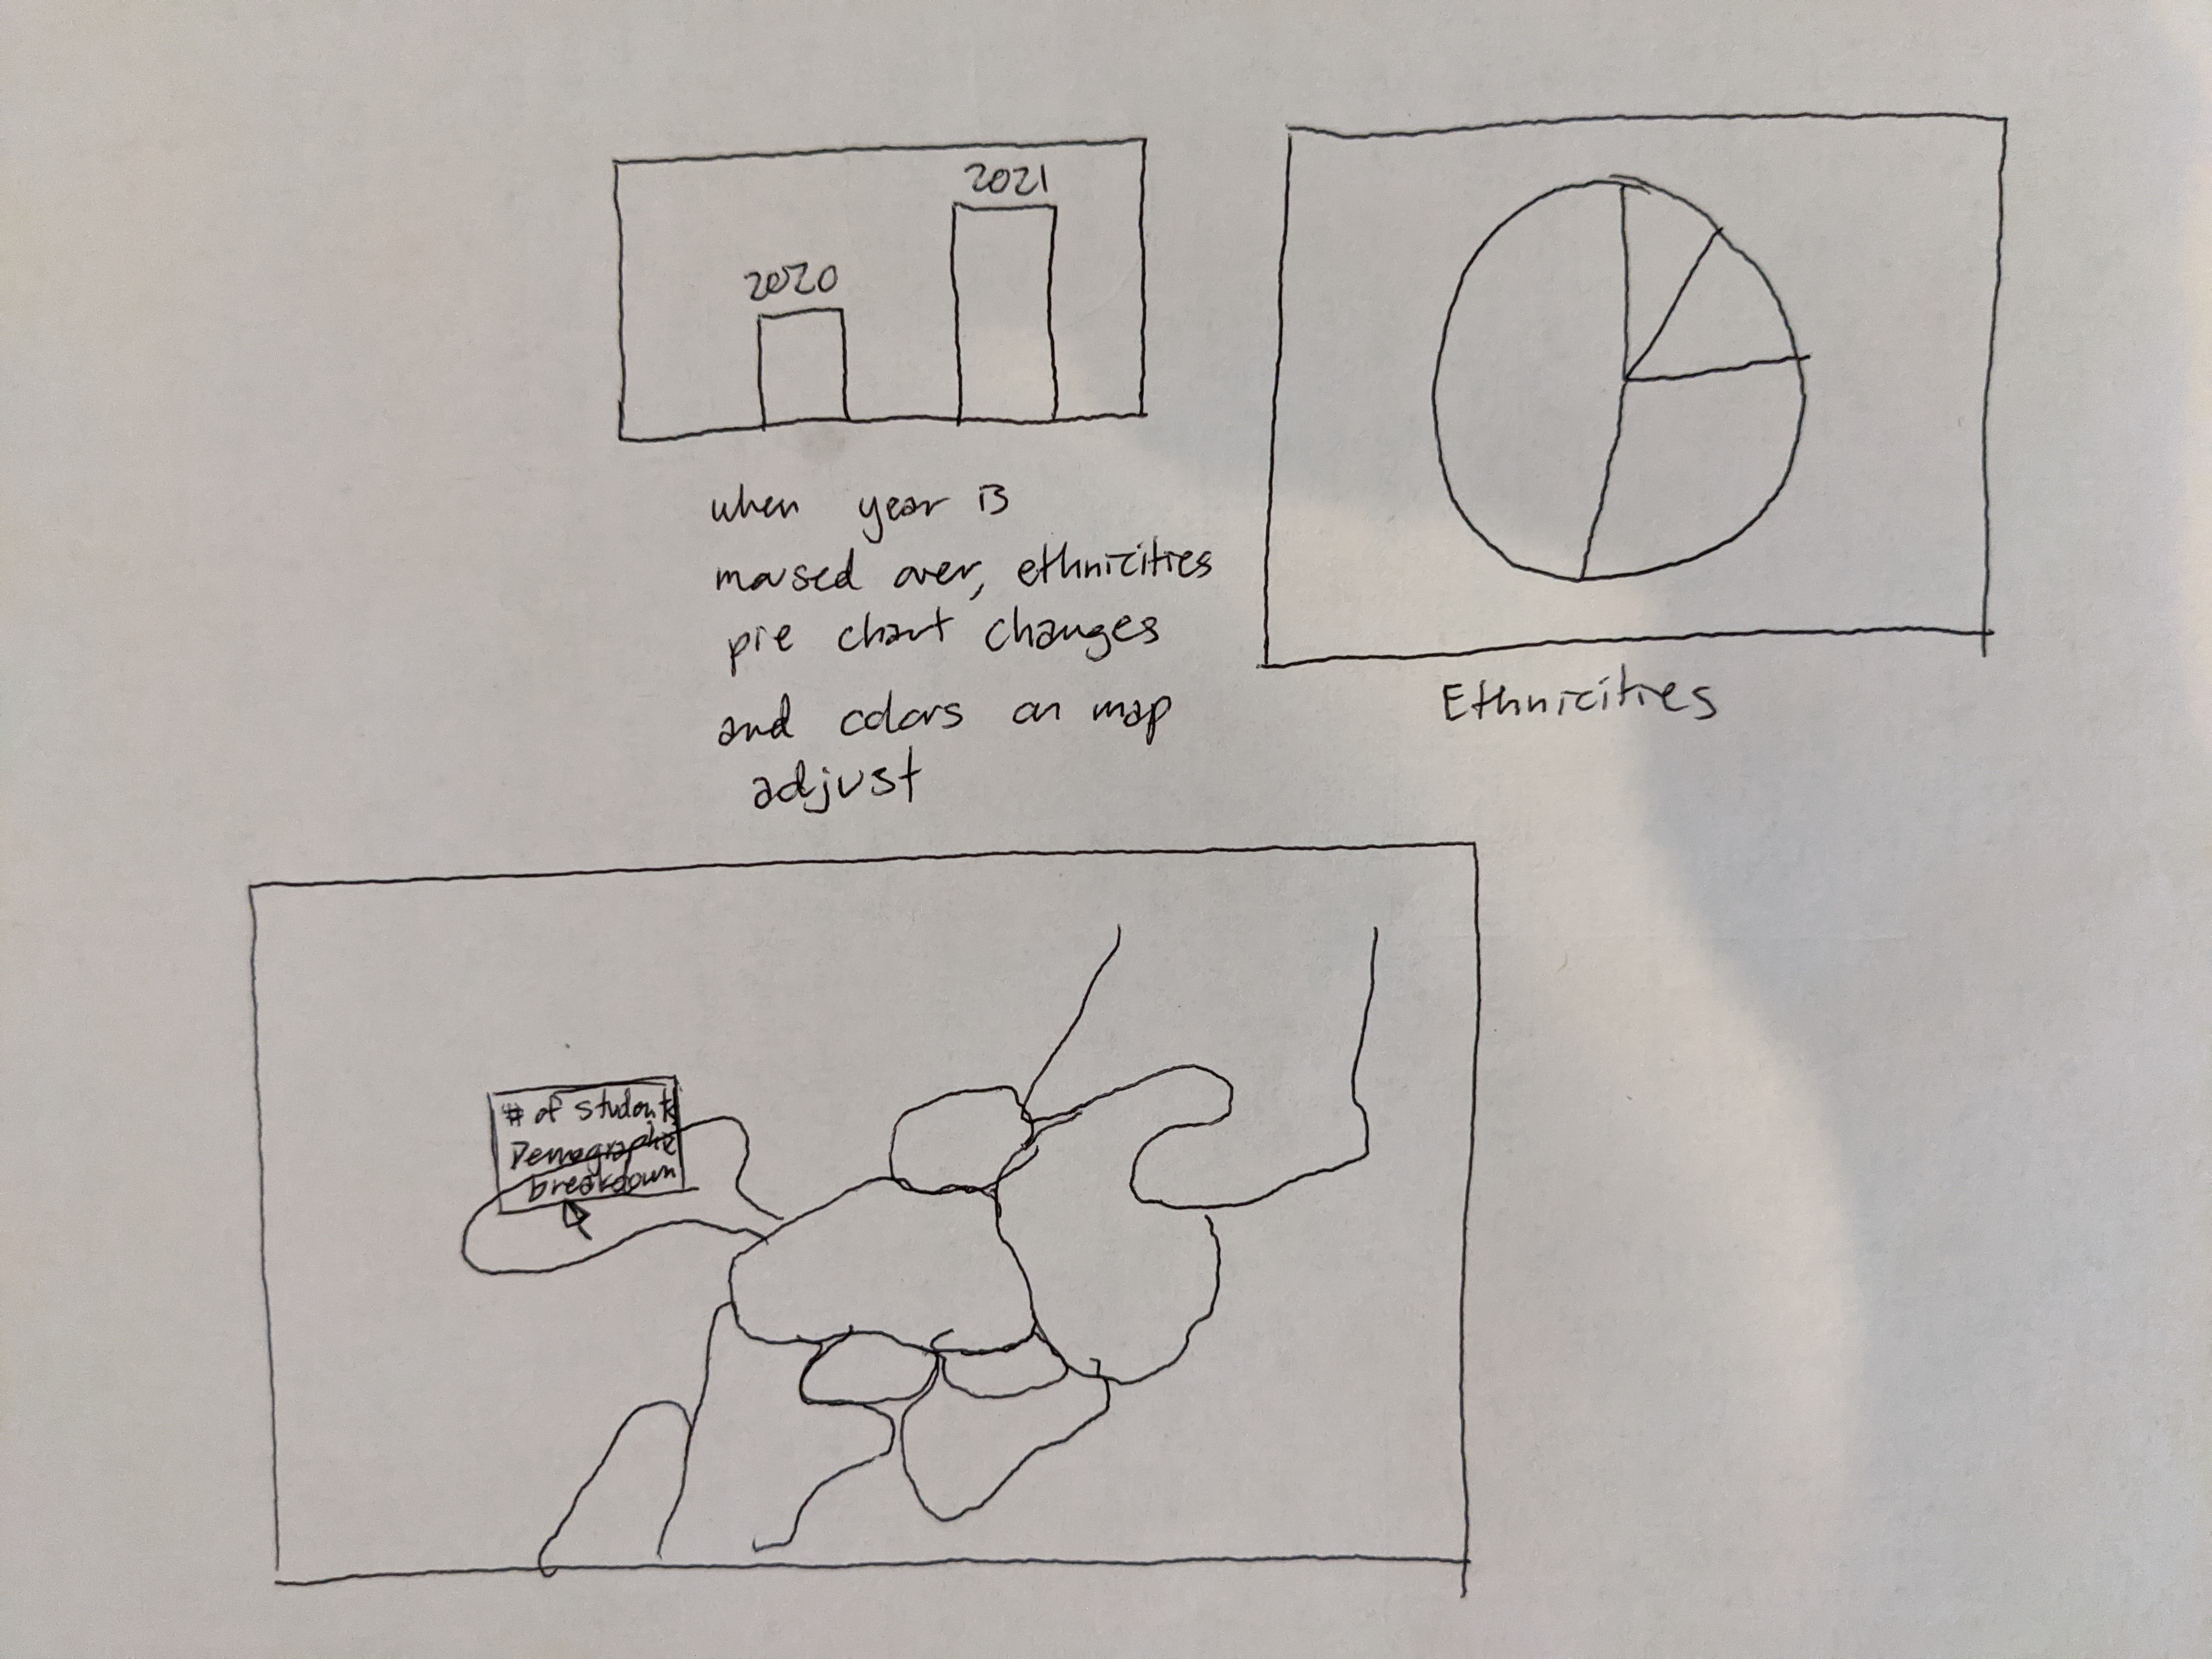 2020
2021
when year is
moused over, ethnicities
pie chart changes
and colors on map
adjust
Ethnicities
# of students
Demographic
breakdown